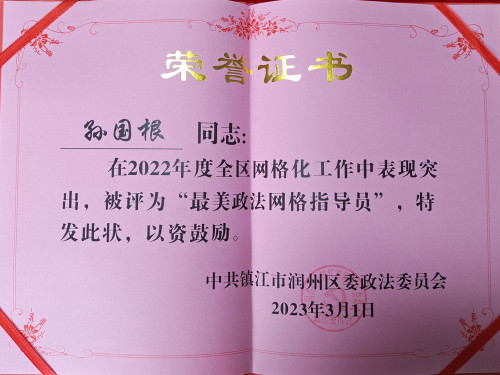 荣誉证书
孙国根 同志:
在2022年度全区网格化工作中表现突
出，被评为“最美政法网格指导员”，特
发此状，以资鼓励。
中共镇江市润州区委政法委员会
2023年3月1日